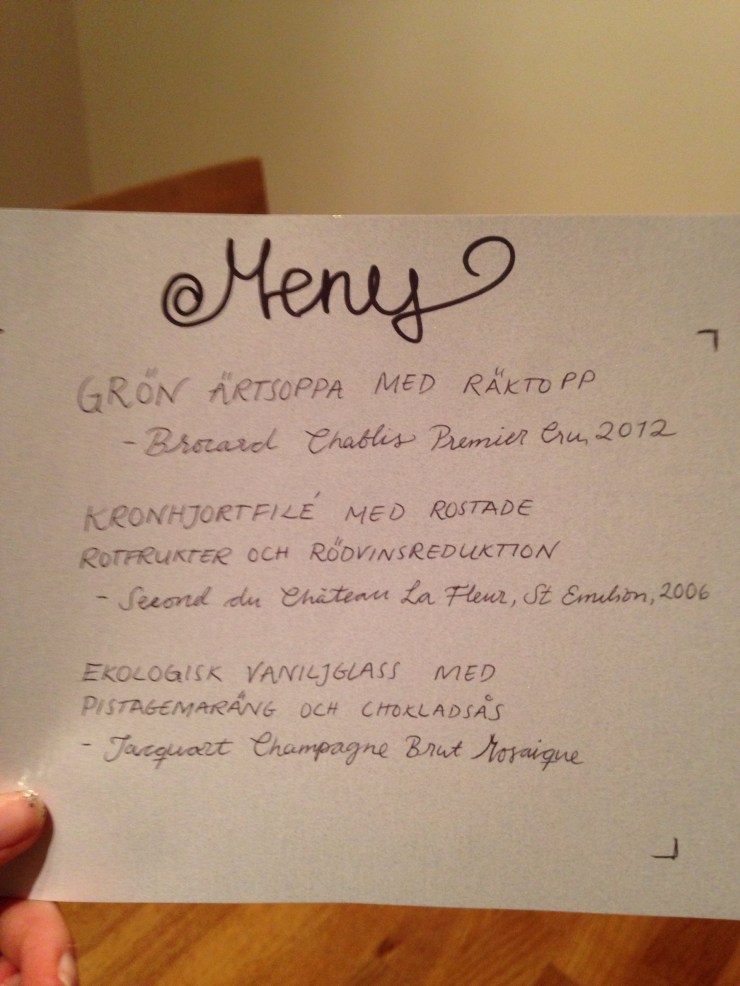 Meny
GRÖN ÄRTSOPPA MED RÄKTOPP
- Brocard Chablis Premier Cru, 2012
KRONHJORTFILÉ MED ROSTADE
ROTFRUKTER OCH RÖDVINSREDUKTION
- Second du Château La Fleur, St Emilion, 2006
EKOLOGISK VANILJGLASS MED
PISTAGEMARÄNG OCH CHOKLADSÅS
- Jacquart Champagne Brut Mosaique